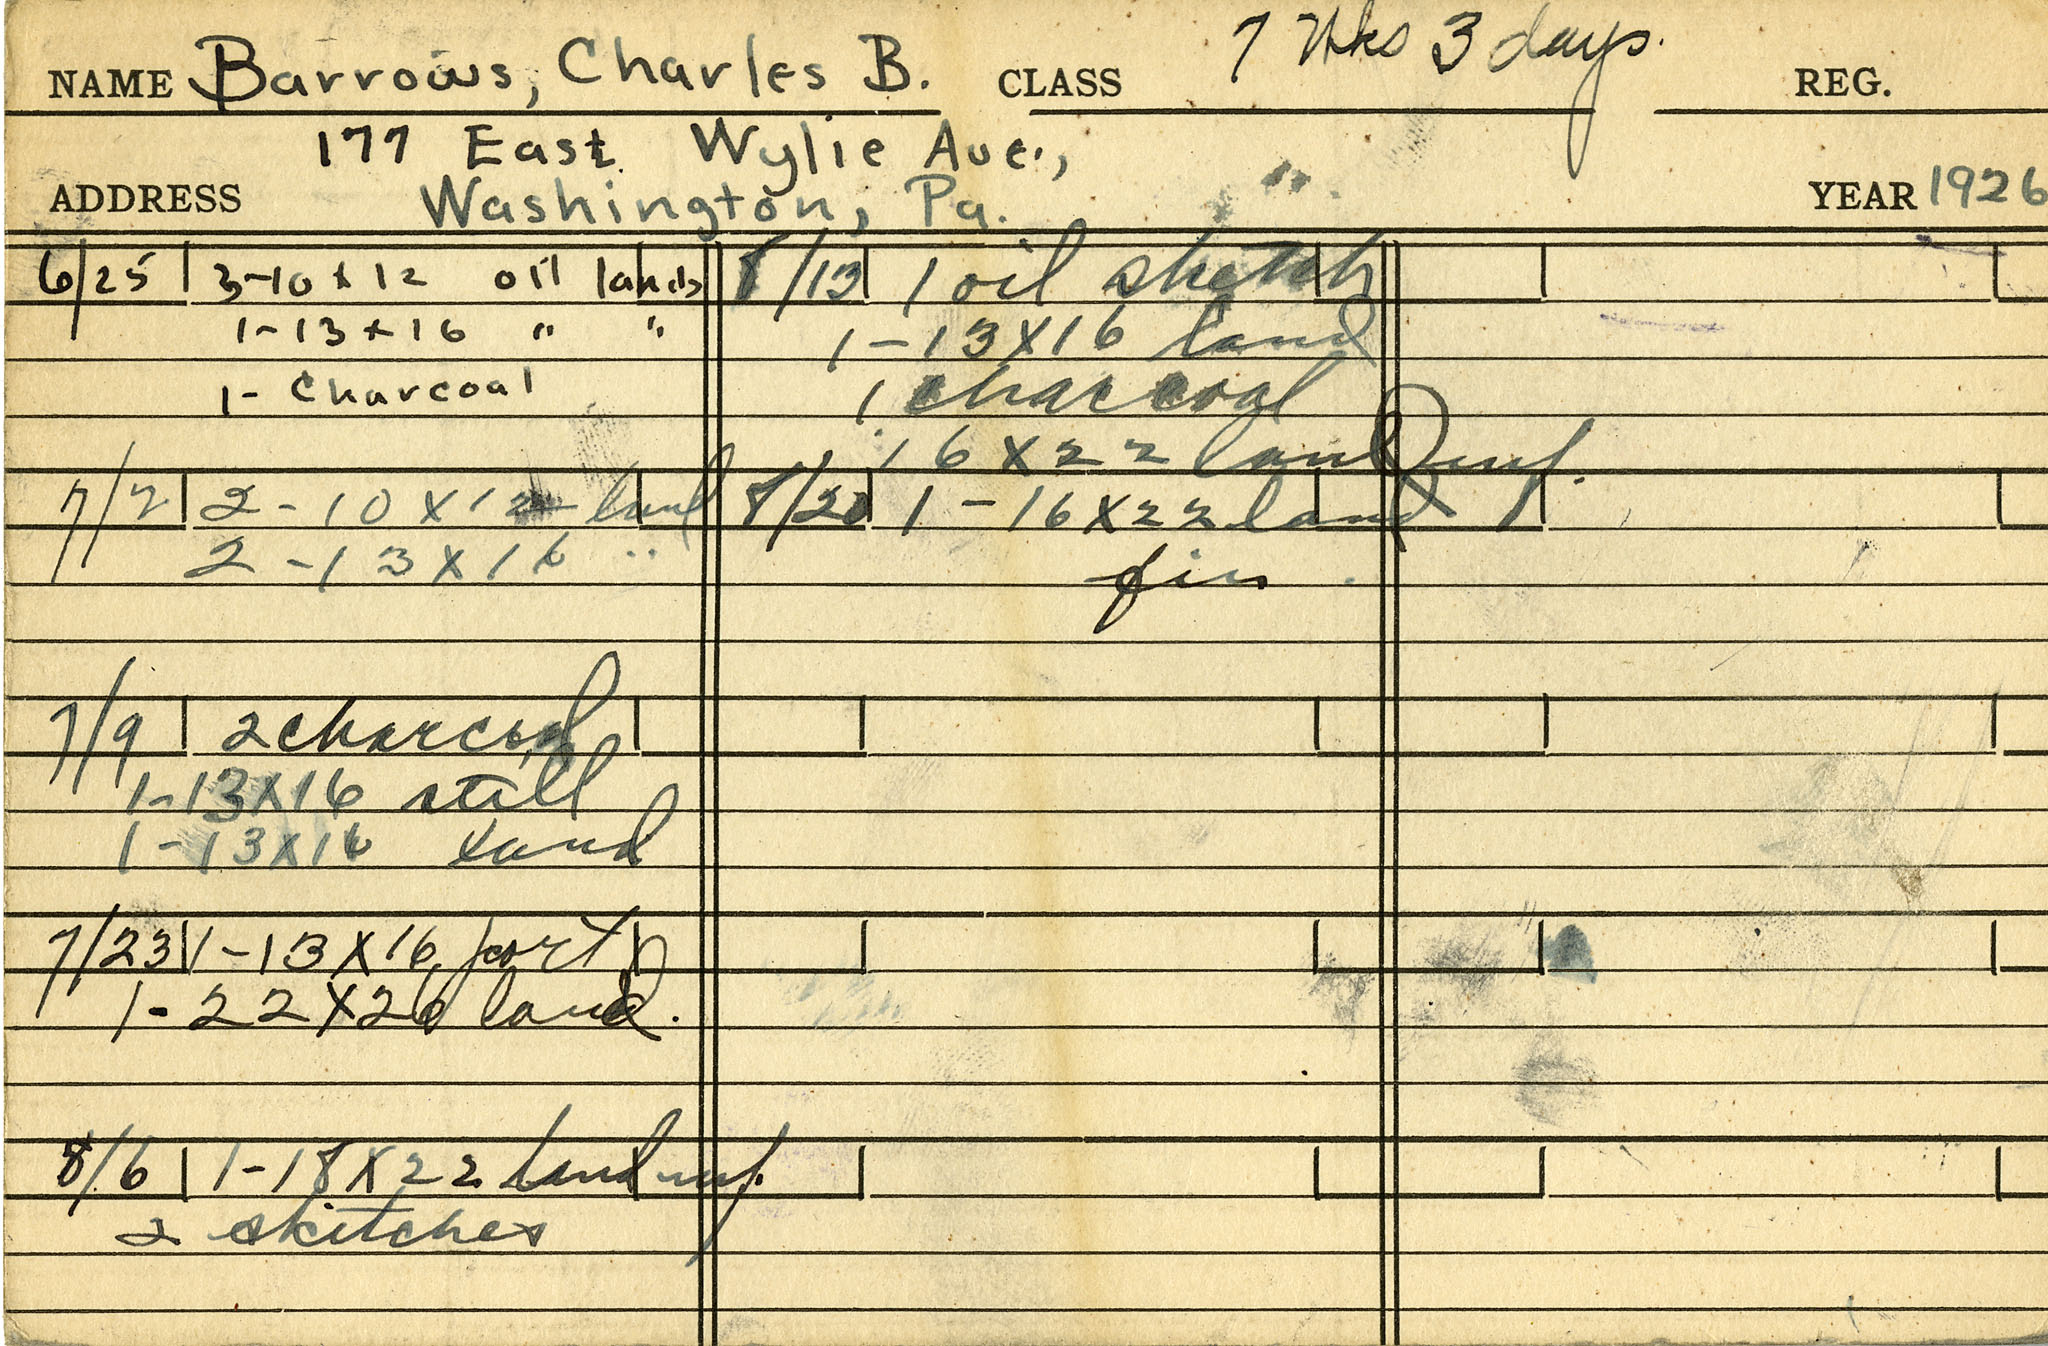 7 Wks 3 days.
NAME Barrows, Charles B. CLASS REG.
177 East Wylie Ave.,
ADDRESS Washington, Pa. " YEAR 1926
6/25 3-10 x 12 oil lands
1-13 x 16 " "
1- Charcoal
7/2 2 - 10 x 12 land
2 - 13 x 16 "
7/9 2 charcoal
1-13x16 still
1-13x16 land
7/23 1-13 x 16 port
1- 22 x 26 land.
8/6 1-18 x 22 land unf.
2 sketches
8/13 1 oil sketch
1 - 13x16 land
1 charcoal
16 x 22 land unf.
8/20 1 - 16 x 22 land
fin